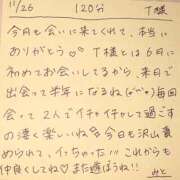 11/26 120分 T様
今月も会いに来てくれて、本当に
ありがとう♡ T様とは6月に
初めてお会いしてるから、来月で
出会って半年になるね(≧∀≦)毎回
会って2人でイチャイチャして過ごす
の凄く楽しいね 今日も沢山責
められて、イっちゃた…!!! これからも
仲良くしてね♡また遊ぼうね!!
みと